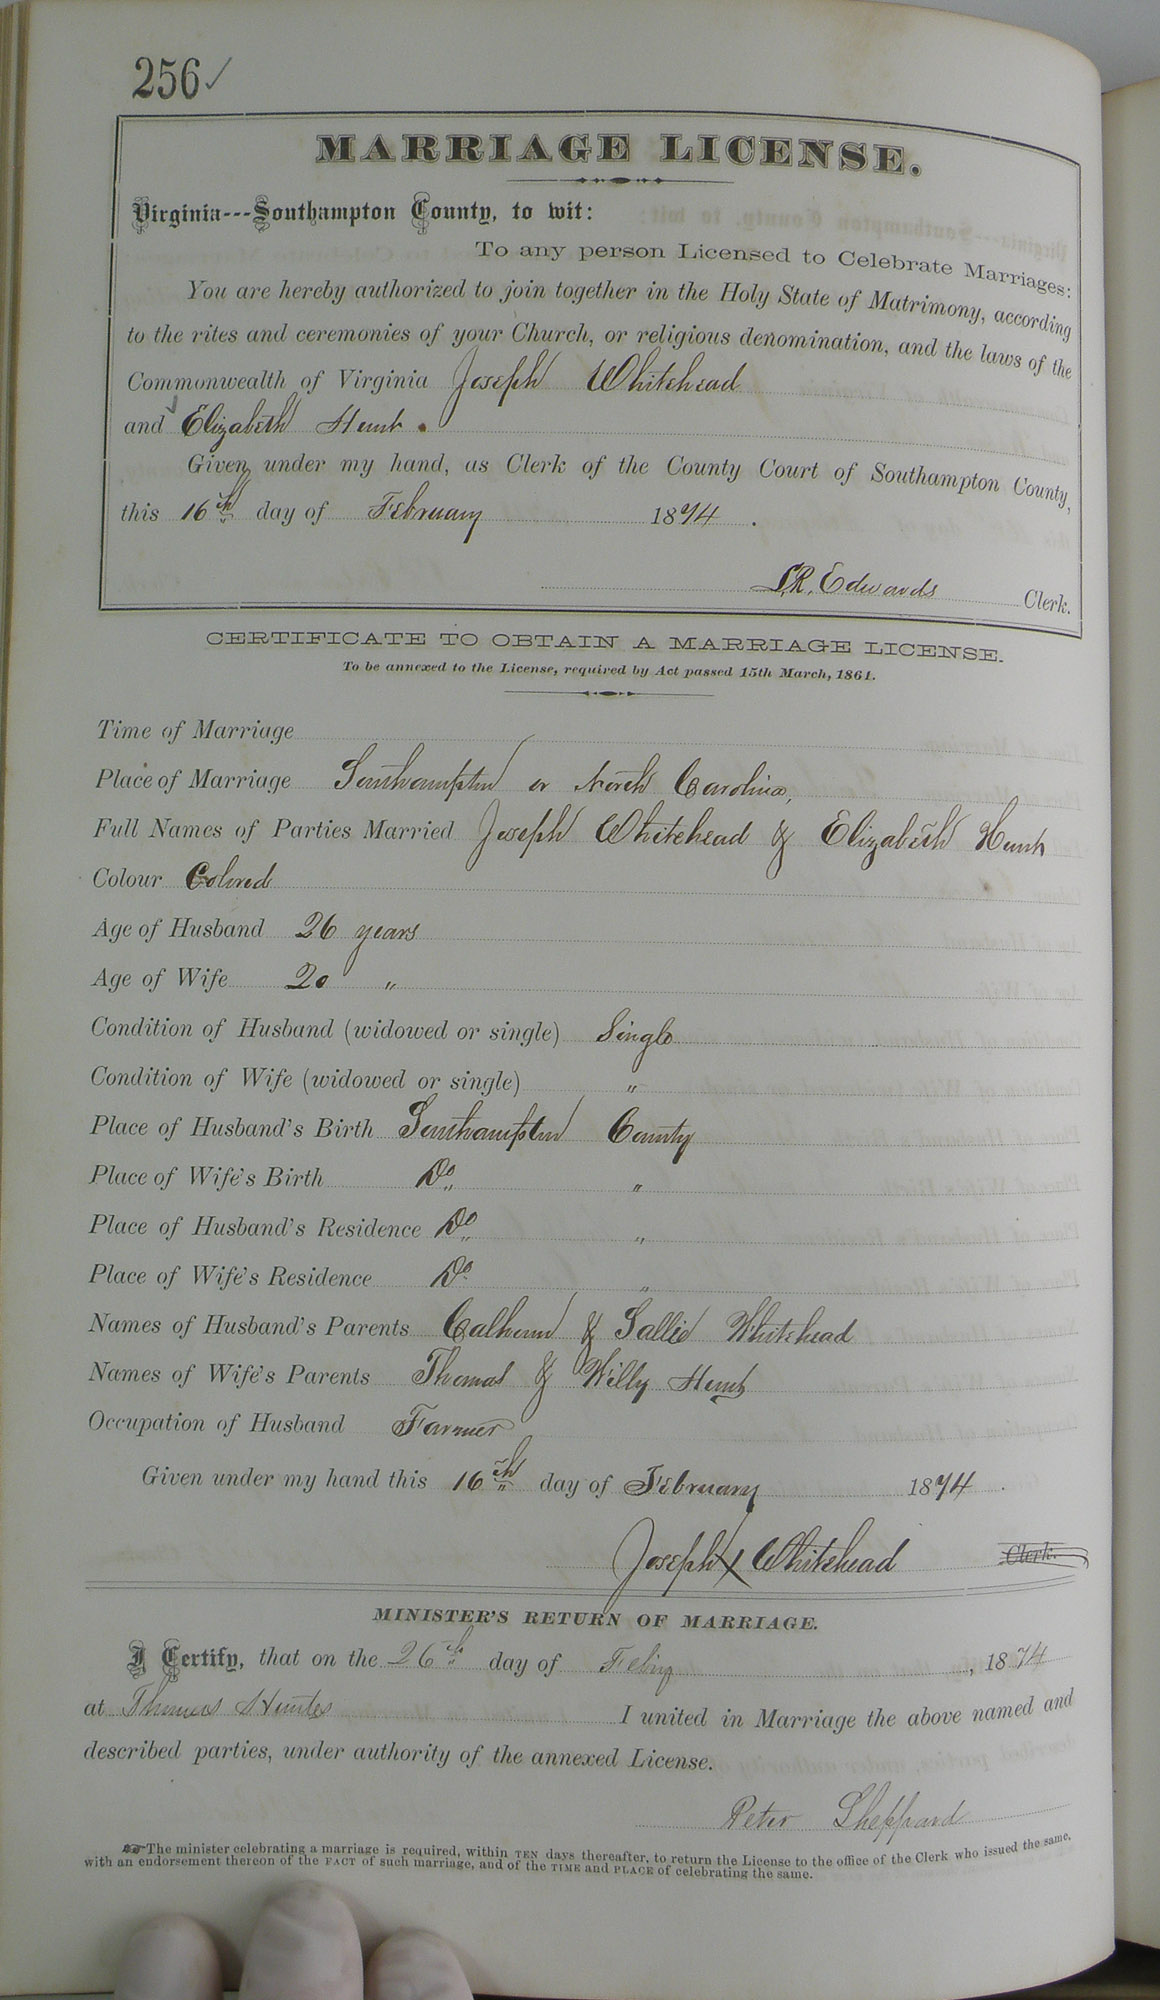 256 ✓
MARRIAGE LICENSE.
Virginia---Southampton County, to wit:
To any person Licensed to Celebrate Marriages:
You are hereby authorized to join together in the Holy State of Matrimony, according
to the rites and ceremonies of your Church, or religious denomination, and the laws of the
Commonwealth of Virginia Joseph Whitehead
and Elizabeth Hunt.
Given under my hand, as Clerk of the County Court of Southampton County,
this 16th day of February 1874.
L.R. Edwards Clerk.
CERTIFICATE TO OBTAIN A MARRIAGE LICENSE.
To be annexed to the License, required by Act passed 15th March, 1861.
Time of Marriage
Place of Marriage Southampton or North Carolina,
Full Names of Parties Married Joseph Whitehead & Elizabeth Hunt
Colour Colored
Age of Husband 26 years
Age of Wife 20 "
Condition of Husband (widowed or single) Single
Condition of Wife (widowed or single) "
Place of Husband's Birth Southampton County
Place of Wife's Birth Do "
Place of Husband's Residence Do "
Place of Wife's Residence Do "
Names of Husband's Parents Calhoun & Sallie Whitehead
Names of Wife's Parents Thomas & Willy Hunt
Occupation of Husband Farmer
Given under my hand this 16th day of February 1874.
Joseph X Whitehead Clerk.
MINISTER'S RETURN OF MARRIAGE.
I Certify, that on the 26th day of Feby, 1874
at Thomas Hunts I united in Marriage the above named and
described parties, under authority of the annexed License.
Peter Sheppard
☞The minister celebrating a marriage is required, within TEN days thereafter, to return the License to the office of the Clerk who issued the same,
with an endorsement thereon of the FACT of such marriage, and of the TIME and PLACE of celebrating the same.